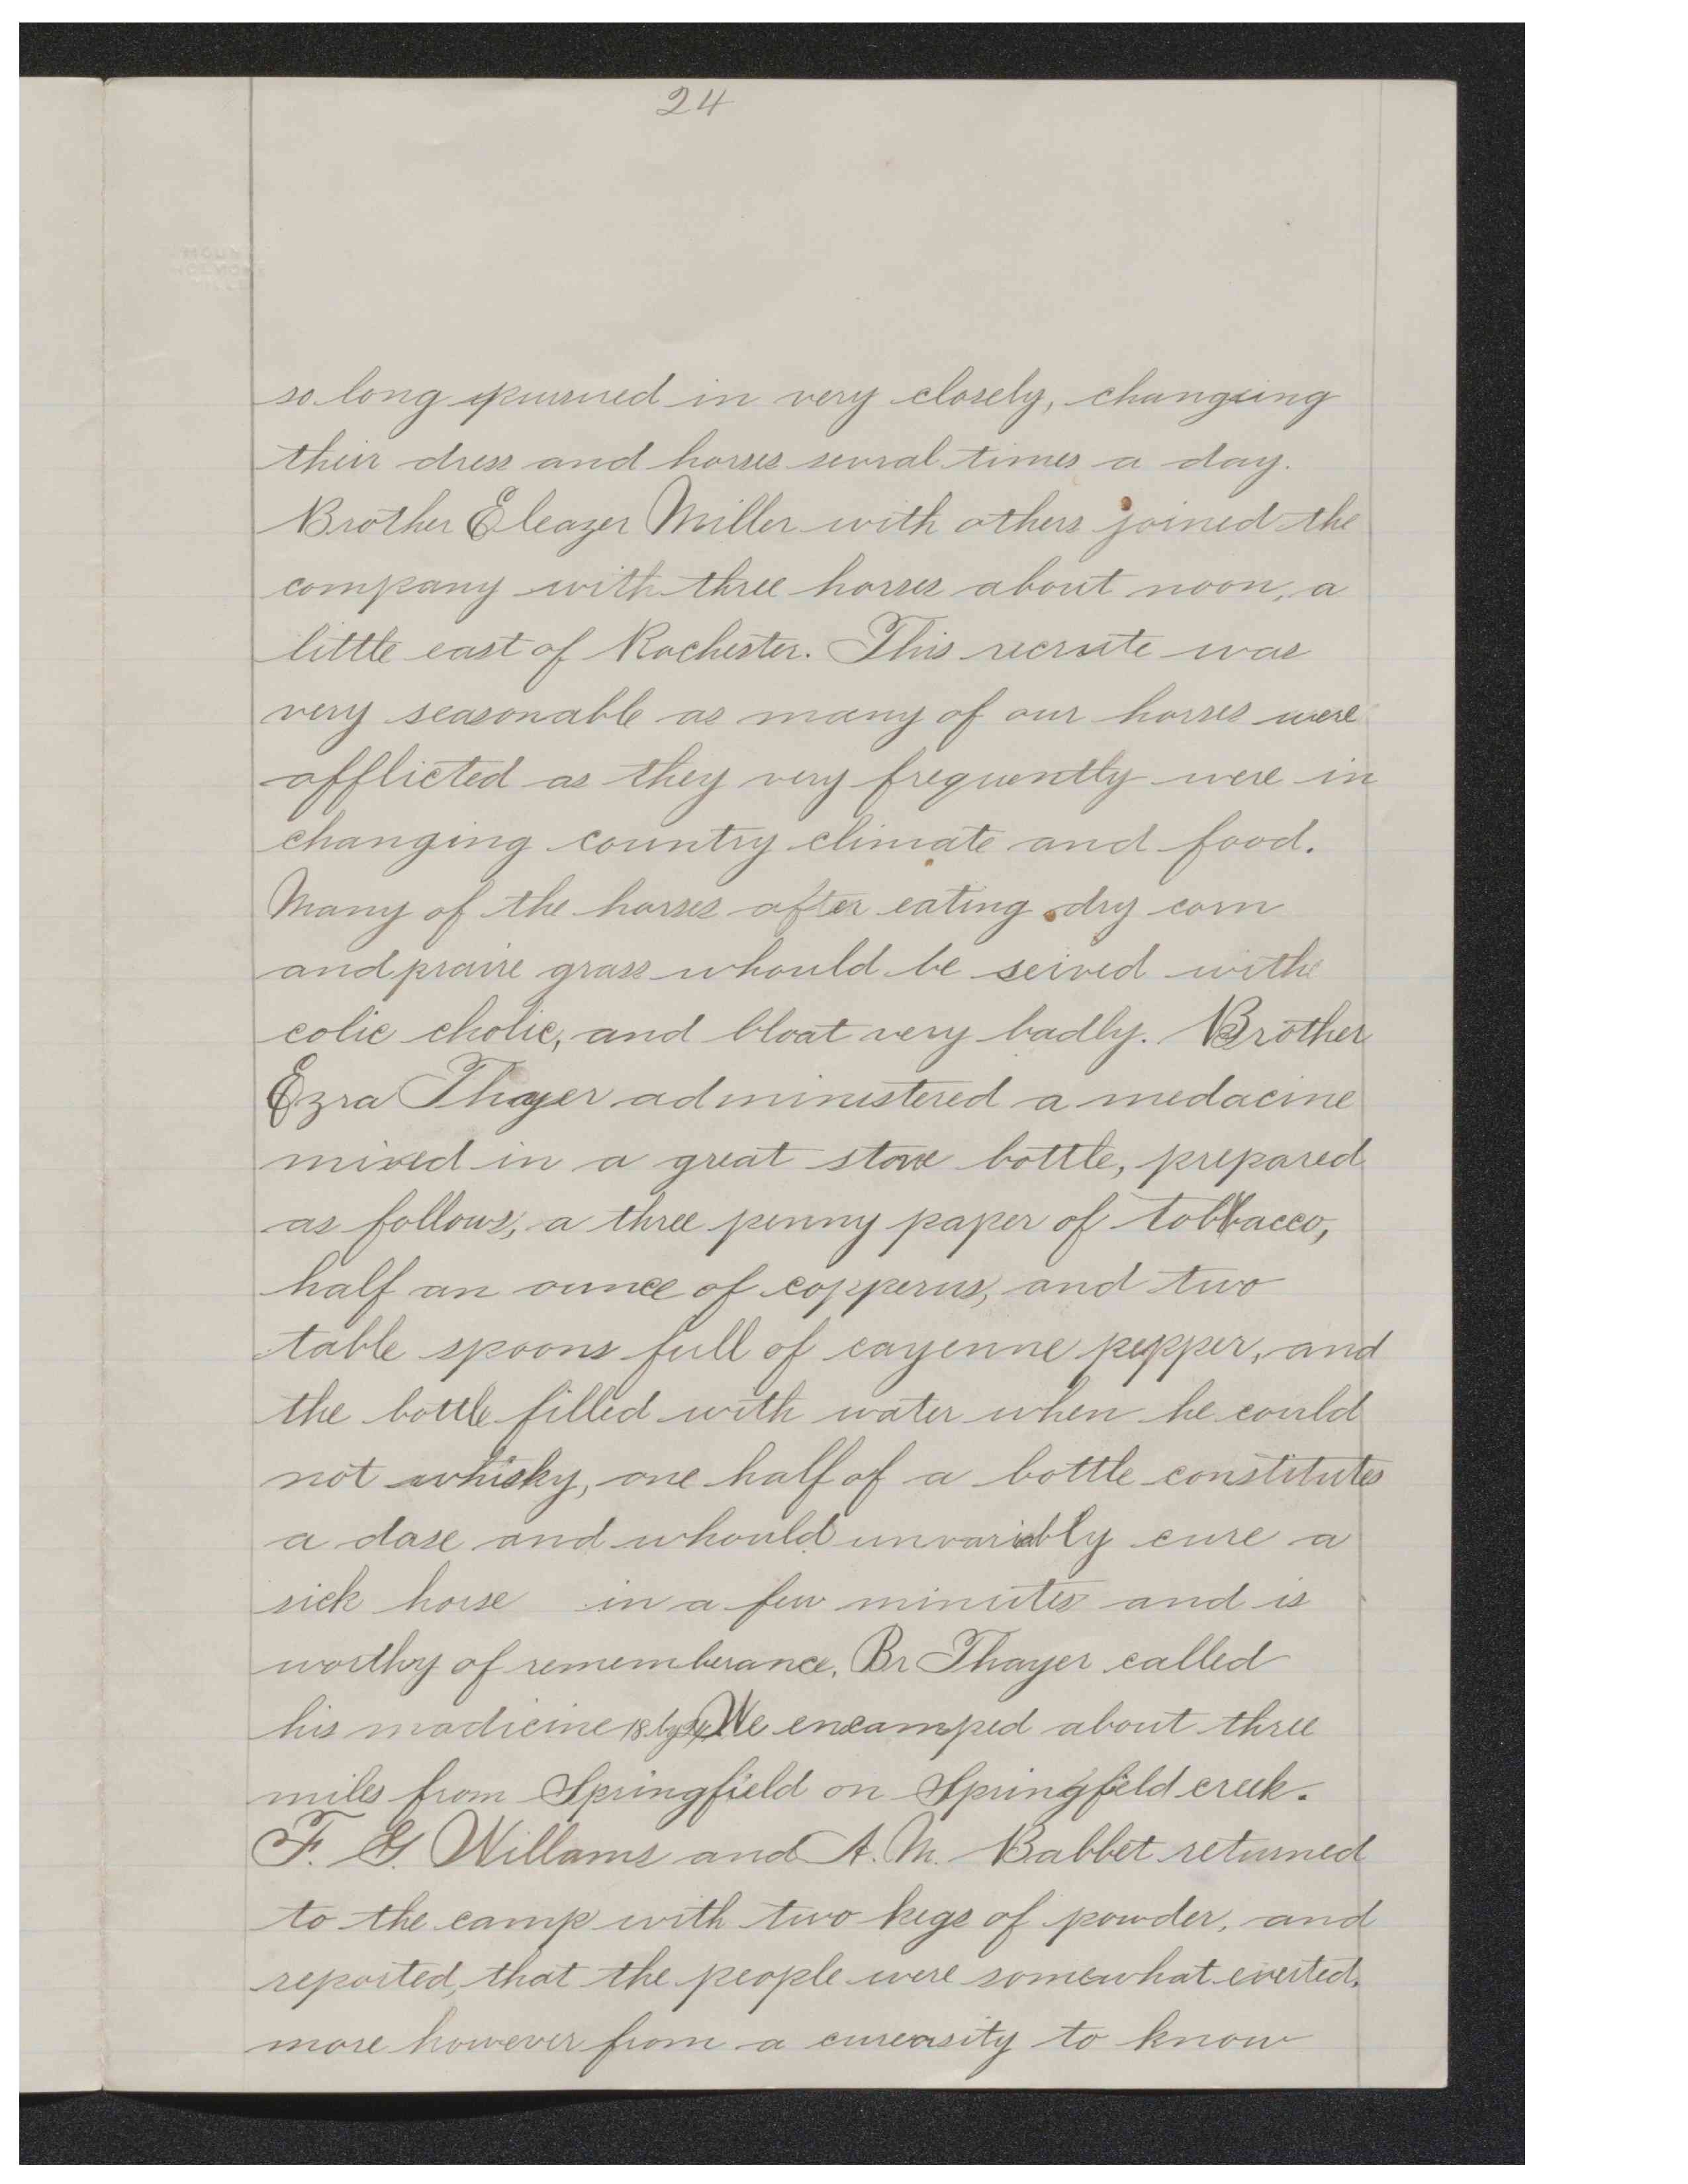 24
so long pursued in very closely, changeing
their dress and horses sevral times a day.
Brother Eleazer Miller with others joined the
company with three horses about noon, a
little east of Rochester. This recruite was
very seasonable as many of our horses were
afflicted as they very frequently were in
changing country climate and food.
Many of the horses after eating dry corn
and praire grass whould be seived withe
colic cholic, and bloat very badly. Brother
Ezra Thayer administered a medacine
mixed in a great stone bottle, prepared
as follows; a three penny paper of tobbacco,
half an ounce of copperus, and two
table spoons full of cayenne pepper, and
the bottle filled with water when he could
not whisky, one half of a bottle constitutes
a dose and whould unvariably cure a
sick horse in a few minutes and is
worthy of rememberance. Br Thayer called
his madicine 18 by 24. We encamped about three
miles from Springfield on Springfield creek.
F. G. Willams and A. M. Babbet returned
to the camp with two kegs of powder, and
reported, that the people were somewhat exerted,
more however from a cureosity to know